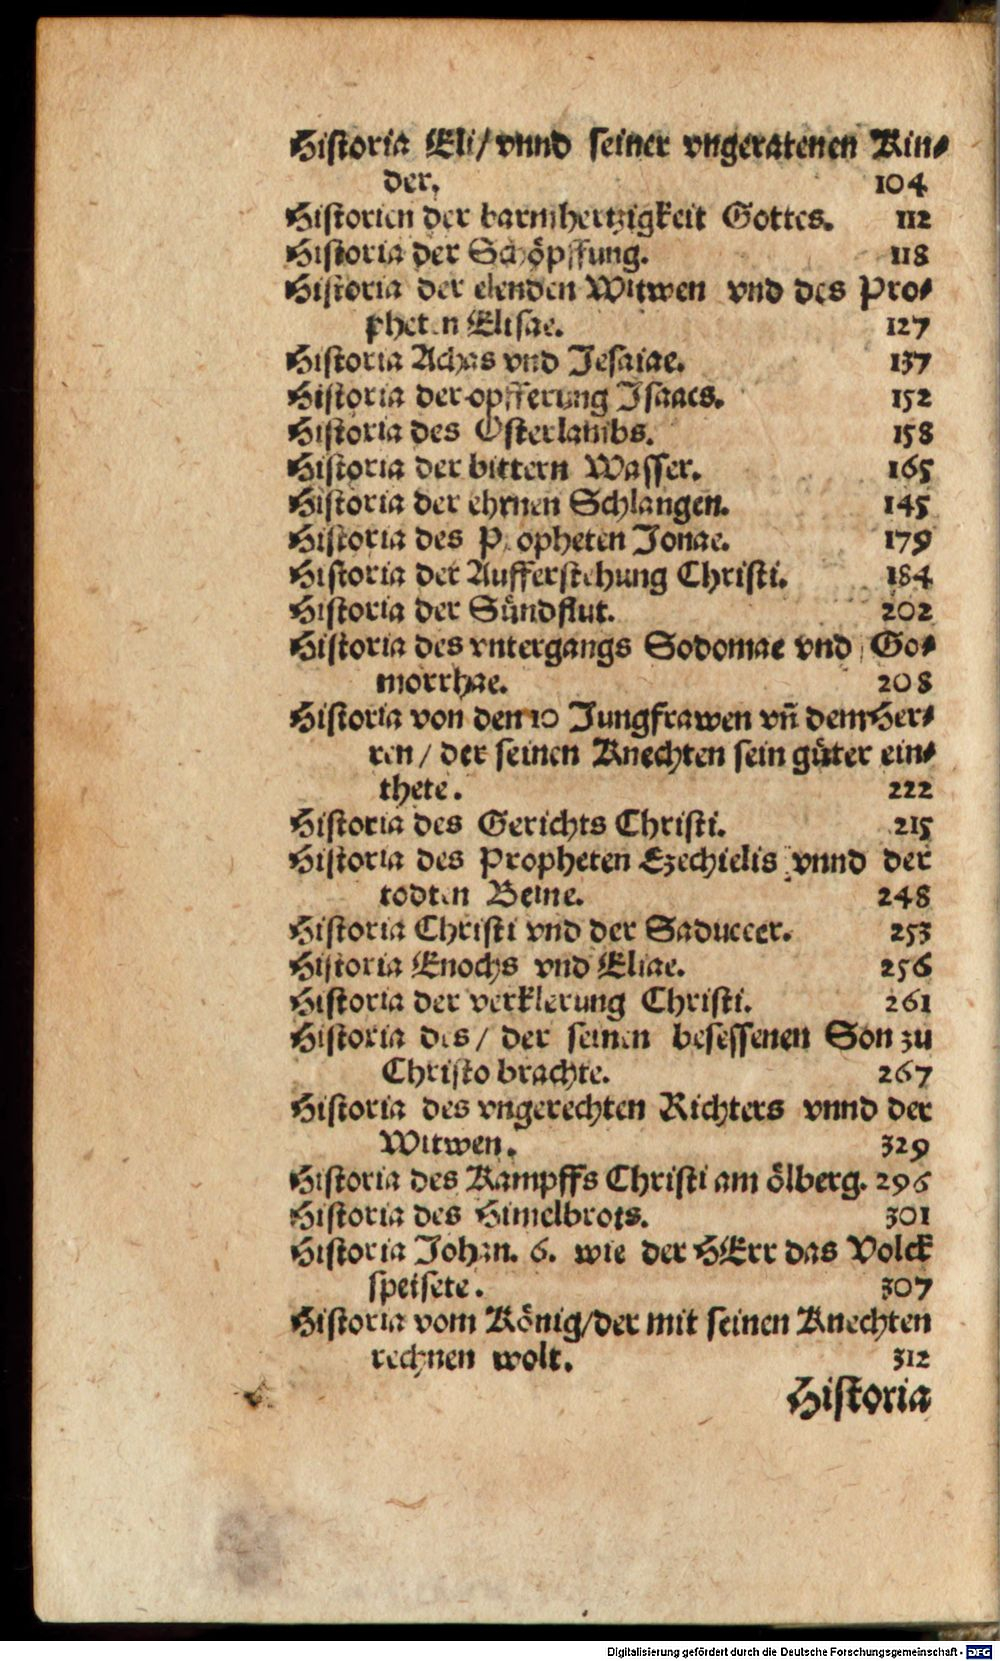 Historia Eli/ vnnd seiner vngeratenen Kin⸗
der. 104
Historien der barmhertzigkeit Gottes. 112
Historia der Schöpffung. 118
Historia der elenden Witwen vnd des Pro⸗
pheten Elisae. 127
Historia Achas vnd Jesaiae. 137
Historia der opfferung Isaacs. 152
Historia des Osterlambs. 158
Historia der bittern Wasser. 165
Historia der ehrnen Schlangen. 145
Historia des Propheten Jonae. 179
Historia der Aufferstehung Christi. 184
Historia der Sündflut. 202
Historia des vntergangs Sodomae vnd Go⸗
morrhae. 208
Historia von den 10 Jungfrawen vñ dem Her⸗
ren/ der seinen Knechten sein güter ein⸗
thete. 222
Historia des Gerichts Christi. 215
Historia des Propheten Ezechielis vnnd der
todten Beine. 248
Historia Christi vnd der Saduceer. 253
Historia Enochs vnd Eliae. 256
Historia der verklerung Christi. 261
Historia des/ der seinen besessenen Son zu
Christo brachte. 267
Historia des vngerechten Richters vnnd der
Witwen. 329
Historia des Kampffs Christi am ölberg. 296
Historia des Himelbrots. 301
Historia Johan. 6. wie der HErr das Volck
speisete. 307
Historia vom König/der mit seinen Knechten
rechnen wolt. 312
Historia
Digitalisierung gefördert durch die Deutsche Forschungsgemeinschaft - DFG